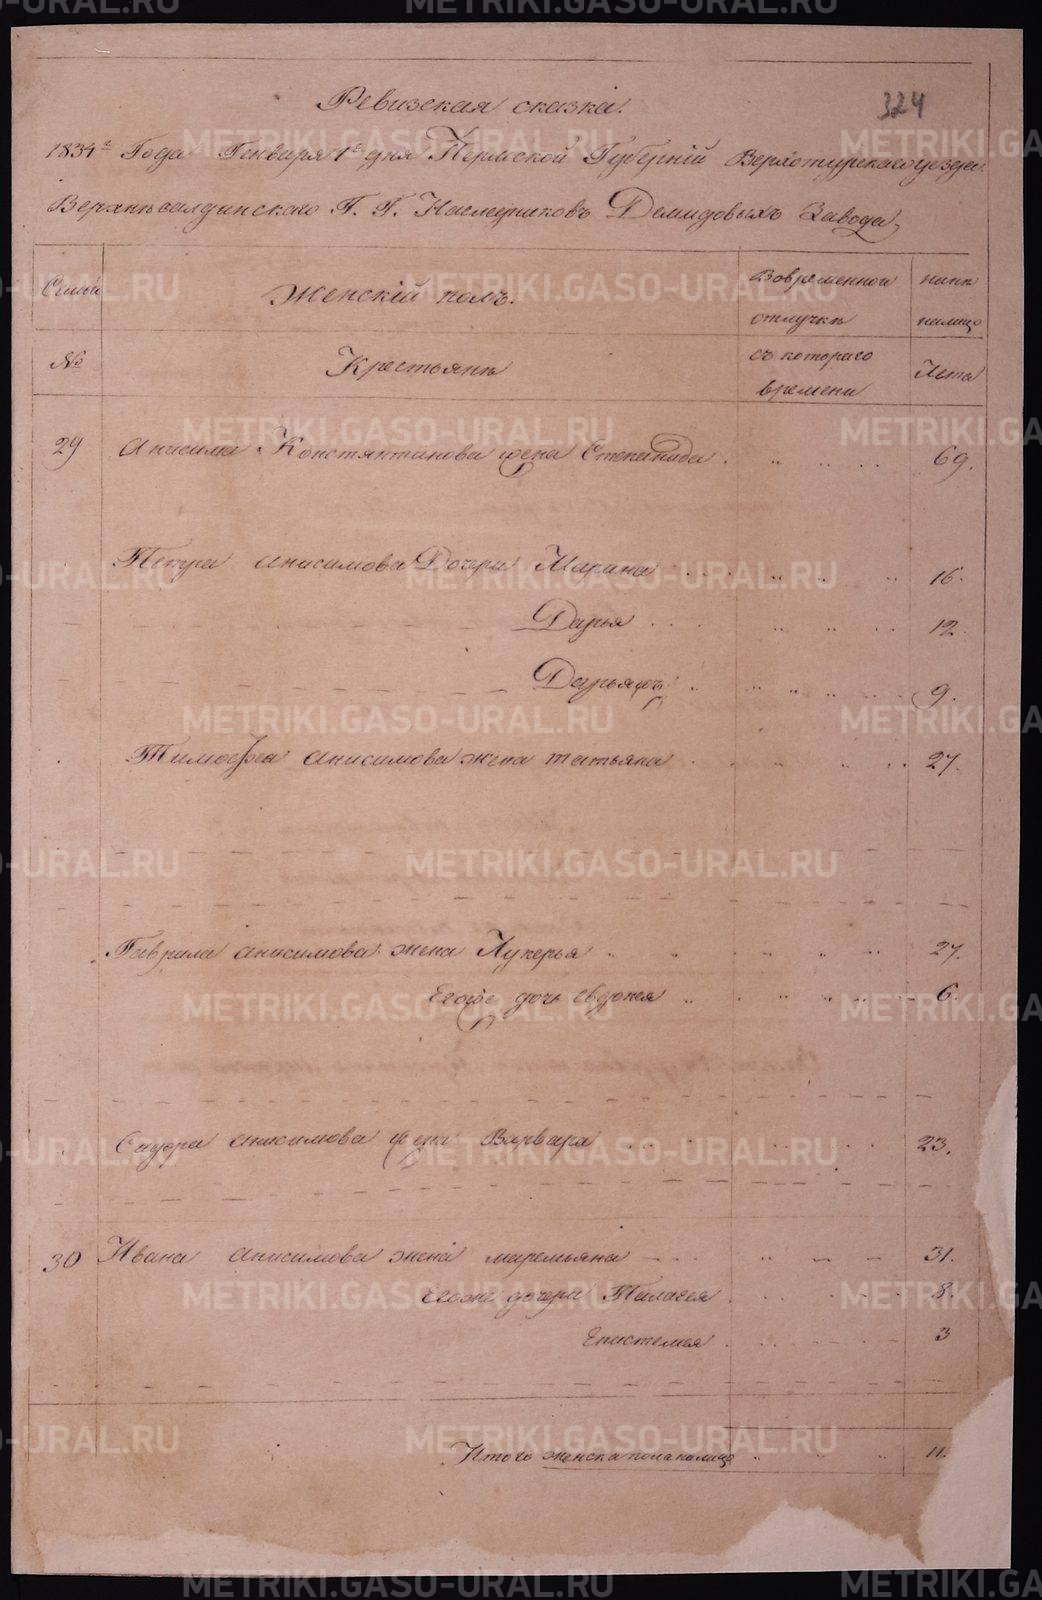 Ревизская сказка.
324
1834го Года Генваря 1го дня Пермской Губернiй Верхотурскаго уезда
Верхнѣсалдинского Г. Г. Наследниковъ Демидовыхъ Завода,
Семьи
Женскiй полъ.
Вовременной отлучкѣ
нынѣ налицо
№
Крестьянѣ
съ котораго времени
Лета
29 Анисима Константинова жена Степанида 69.
Петра Анисимова Дочри Марина 16.
Дарья 12.
Дарья жъ 9.
Тимофея Анисимова жена татьяна 27.
Гаврила анисимова жена Лукерья 27.
Егоже дочь евдокея 6.
Сидора анисимова жена Варвара 23.
30 Ивана анисимова жена маремьяна 31.
Егоже дочери Пилагея 8.
Епистемея 3
Итого женска пола налицо 11.
METRIKI.GASO-URAL.RU